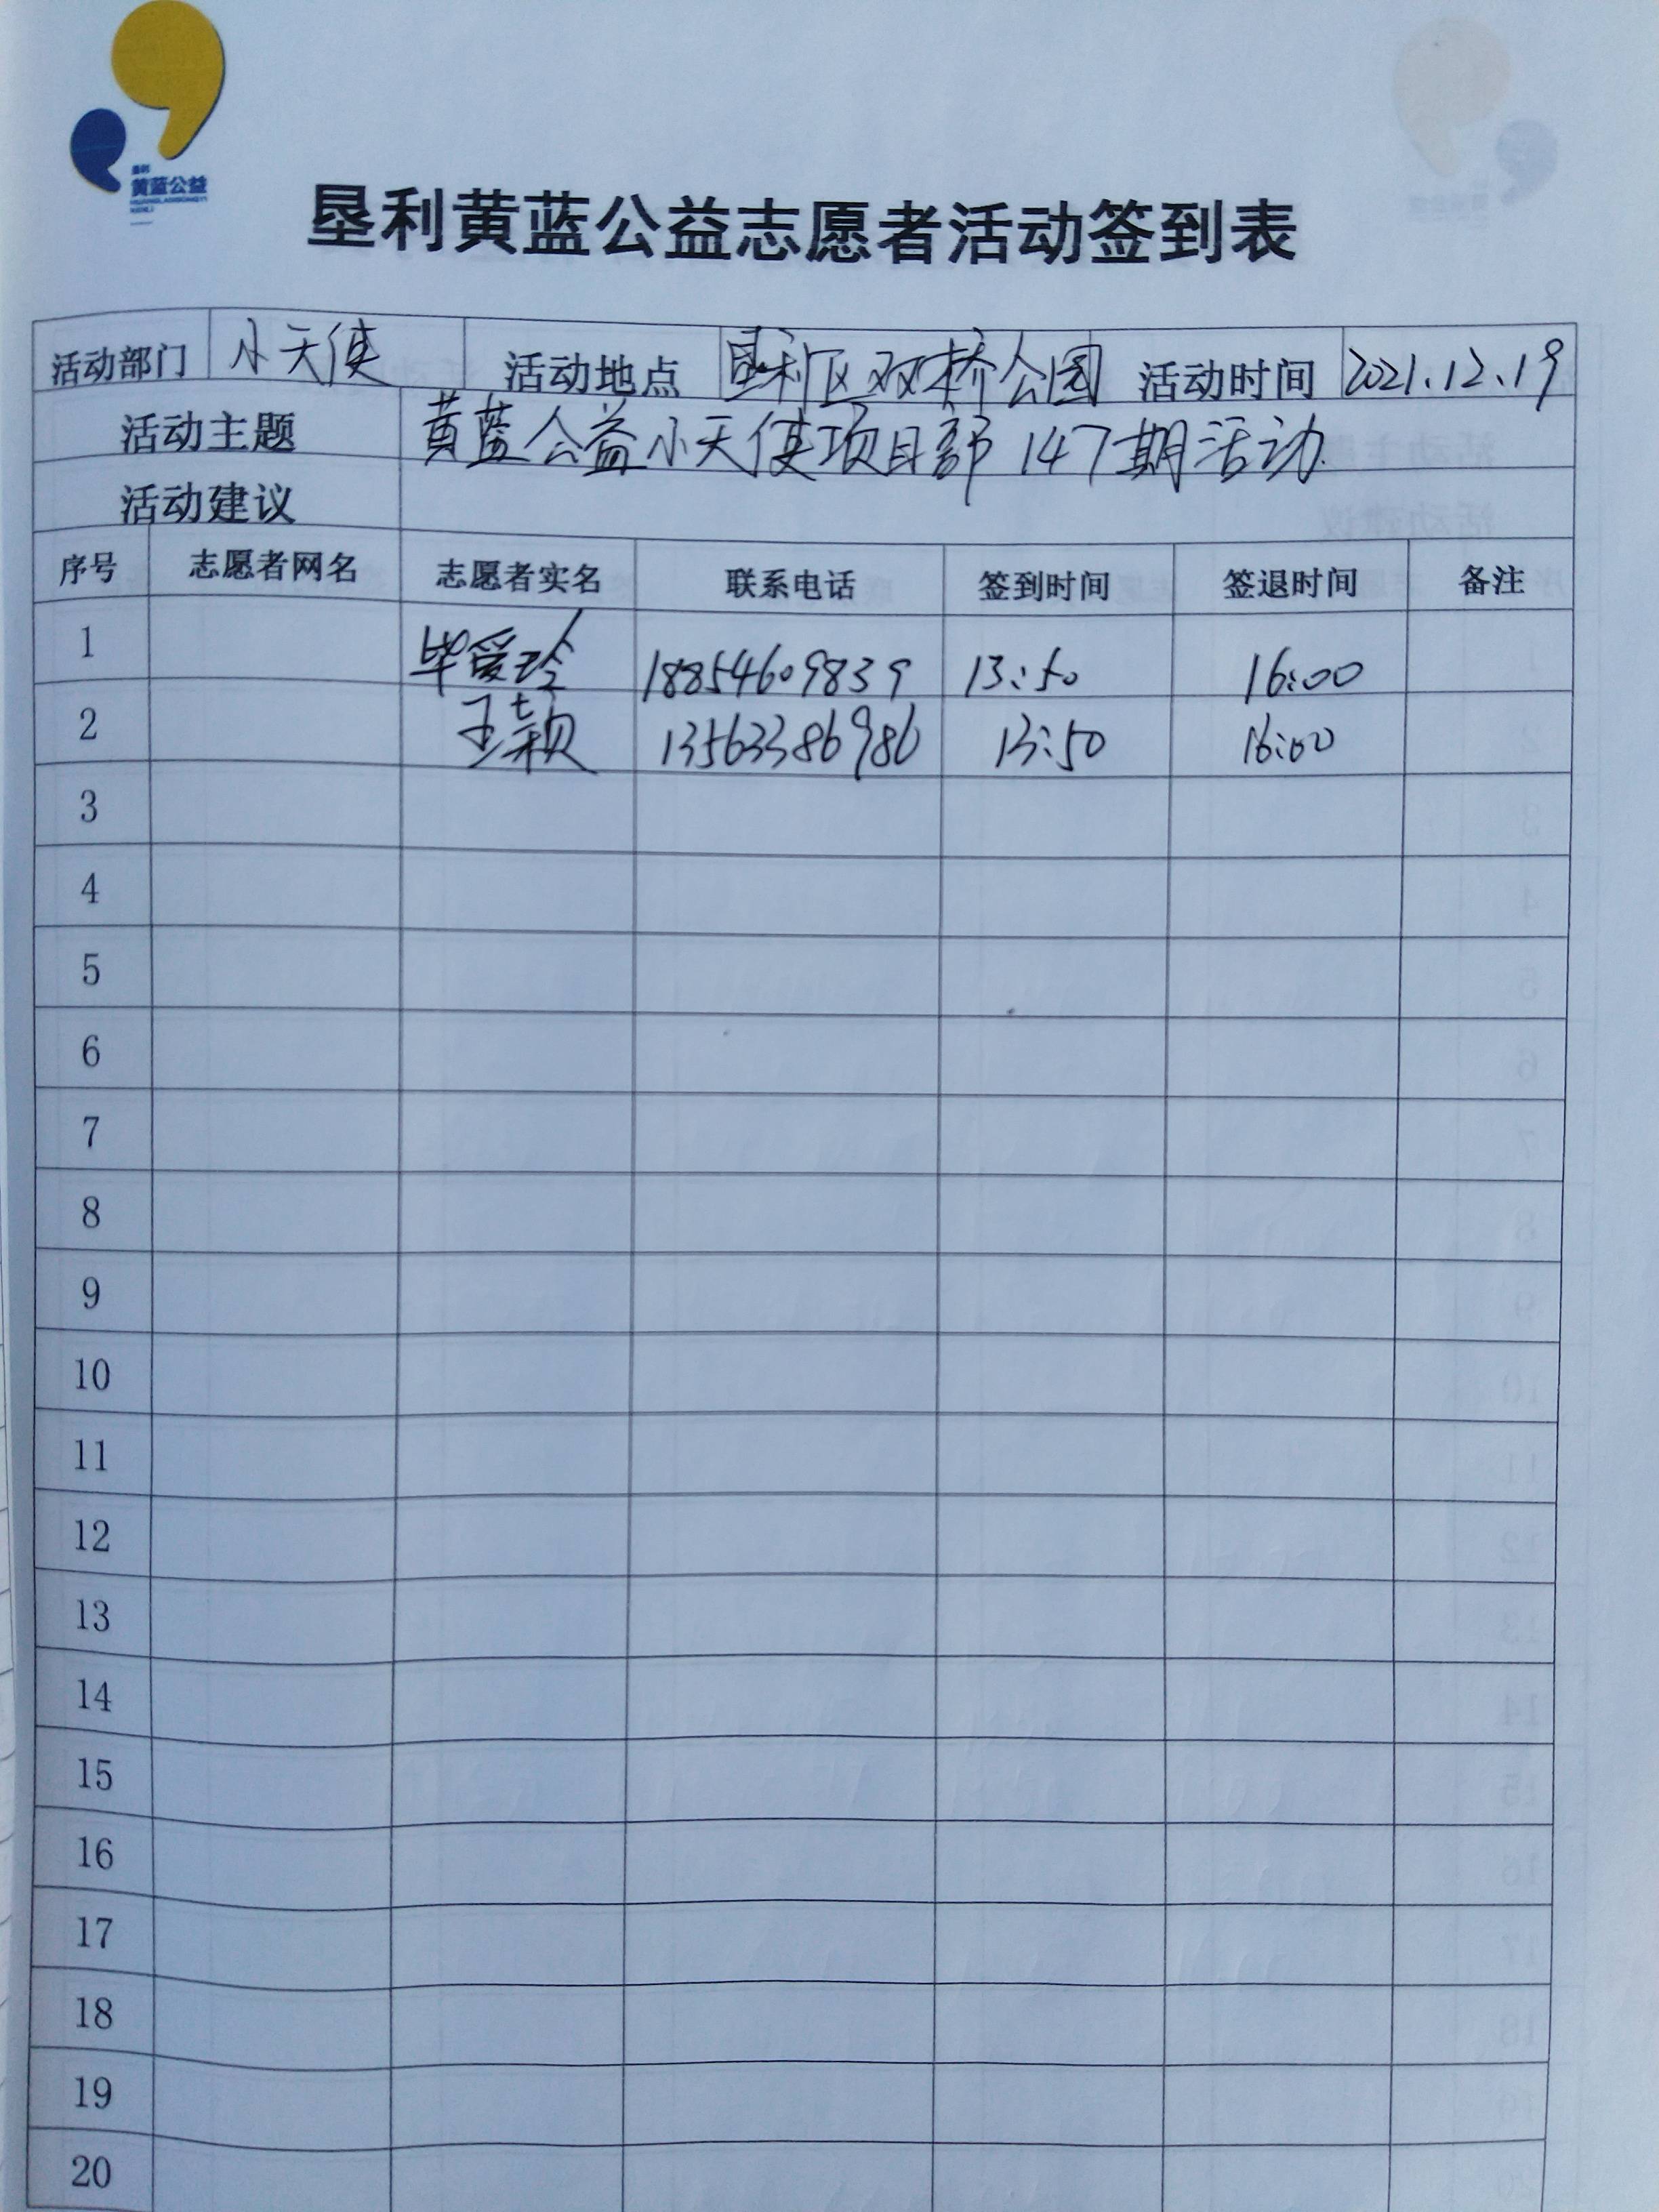 垦利
黄蓝公益
HUANGLANGONGYI
KENLI
垦利黄蓝公益志愿者活动签到表
活动部门 小天使 活动地点 垦利区双桥公园 活动时间 2021.12.19
活动主题 黄蓝公益小天使项目部147期活动
活动建议
序号 志愿者网名 志愿者实名 联系电话 签到时间 签退时间 备注
1 毕爱玲 18854609839 13:50 16:00
2 王颖 13563386986 13:50 16:00
3
4
5
6
7
8
9
10
11
12
13
14
15
16
17
18
19
20